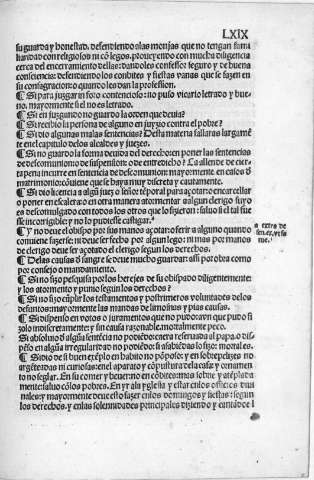 LXIX
su guarda y honestad. defendiendo alas monjas que no tengan fami
liaridad con religiosos ni cõ legos. proueyendo con mucha diligencia
cerca del encerramiento dellas: dandoles confessor seguro y de buena
consciencia: defendiendo los conbites y fiestas vanas que se fazen en
su consagracion: o quando les dan la profession.
¶ Si para juzgar in foro contencioso: no puso vicario letrado y bue-
no. mayormente si el no es letrado.
¶ Si en juzgando no guardo la orden que deuia?
¶ Si recibio la persona de alguno en juyzio contra el pobre?
¶ Si dio algunas malas sentencias? Desta materia fallaras largamẽ
te en el capitulo delos alcaldes y juezes.
¶ Si no guardo la forma deuida del derecho: en poner las sentencias
de descomunion: o de suspension: o de entredicho? Ca allende de cier-
ta pena incurre en sentencia de descomunion: mayormente en casos d̃
matrimonio: cõuiene que se haya muy discreta y cautamente.
¶ Si dio licencia a algũ juez o señor tẽporal para açotar o encarcellar
o poner en escalera: o en otra manera atormentar a algun clerigo suyo
es descomulgado con todos los otros que lo fizieron: saluo si el tal fue
sse incorrigible: y no lo pudiesse castigar.ª
¶ Y no deue el obispo por sus manos açotar o ferir a alguno quando
conuiene fazerse: ni deue ser fecho por algun lego: ni mas por manos
de clerigo deue ser açotado el clerigo segun los derechos.
a extra de
sen. ex. vt fa
me.
¶ Delas causas d̃ sangre se deue mucho guardar: assi por obra como
por consejo o mandamiento.
¶ Si no fizo pesquisa por los herejes de su obispado diligentemente:
y los atormento y punio segun los derechos?
¶ Si no fizo cũplir los testamentos y postrimeros voluntades delos
defuntos: mayormente las mandas de limosnas y pias causas.
¶ Si dispenso en votos o juramentos que no pudo: avn que pudo si
fizolo indiscretamente: y sin causa razonable. mortalmente peco.
Si absoluio d̃ algũa sentẽcia no pudiẽdo: o era reseruada al papa. o dis
pẽso en algũa irregularidad no pudiẽdo: si a sabiẽdas lo fizo: mortal es.
¶ Si dio de si buen exẽplo en habito no põposo: y en sobrepelizes no
argẽtadas ni curiosas: en el aparato y cõpustura dela casa y ornamẽto
no seglar. En su comer y beuer: no en cõbites: mas sobria y atẽplada
mente: saluo cõ los pobres. En yr ala yglesia y estar enlos officios diui
nales: y mayormente deue esto fazer enlos domingos y fiestas: segun
los derechos. y enlas solennidades principales diziendo y cantãdo l